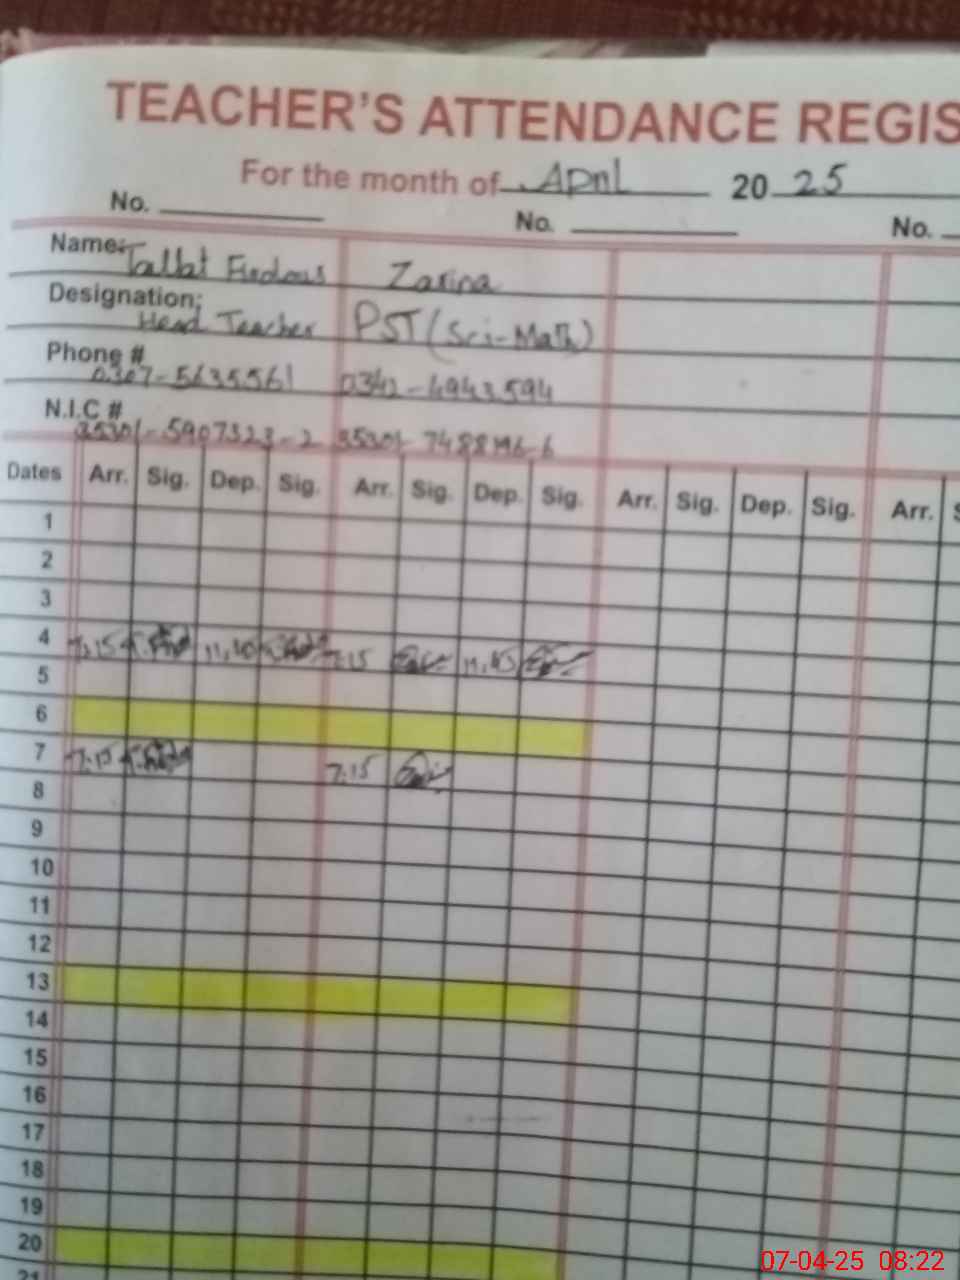 TEACHER'S ATTENDANCE REGIS
For the month of April 20 25
No. No. No.
Name: Tallat Firdous Zarina
Designation; Head Teacher PST (Sci-Math)
Phone # 0307-5635561 0342-4943594
N.I.C # 35301-5907323-2 35301-7488196-6
Dates Arr. Sig. Dep. Sig. Arr. Sig. Dep. Sig. Arr. Sig. Dep. Sig. Arr. S
1
2
3
4 7:15 11:40 7:15 11:45
5
6
7 7:15 7:15
8
9
10
11
12
13
14
15
16
17
18
19
20
21
07-04-25 08:22